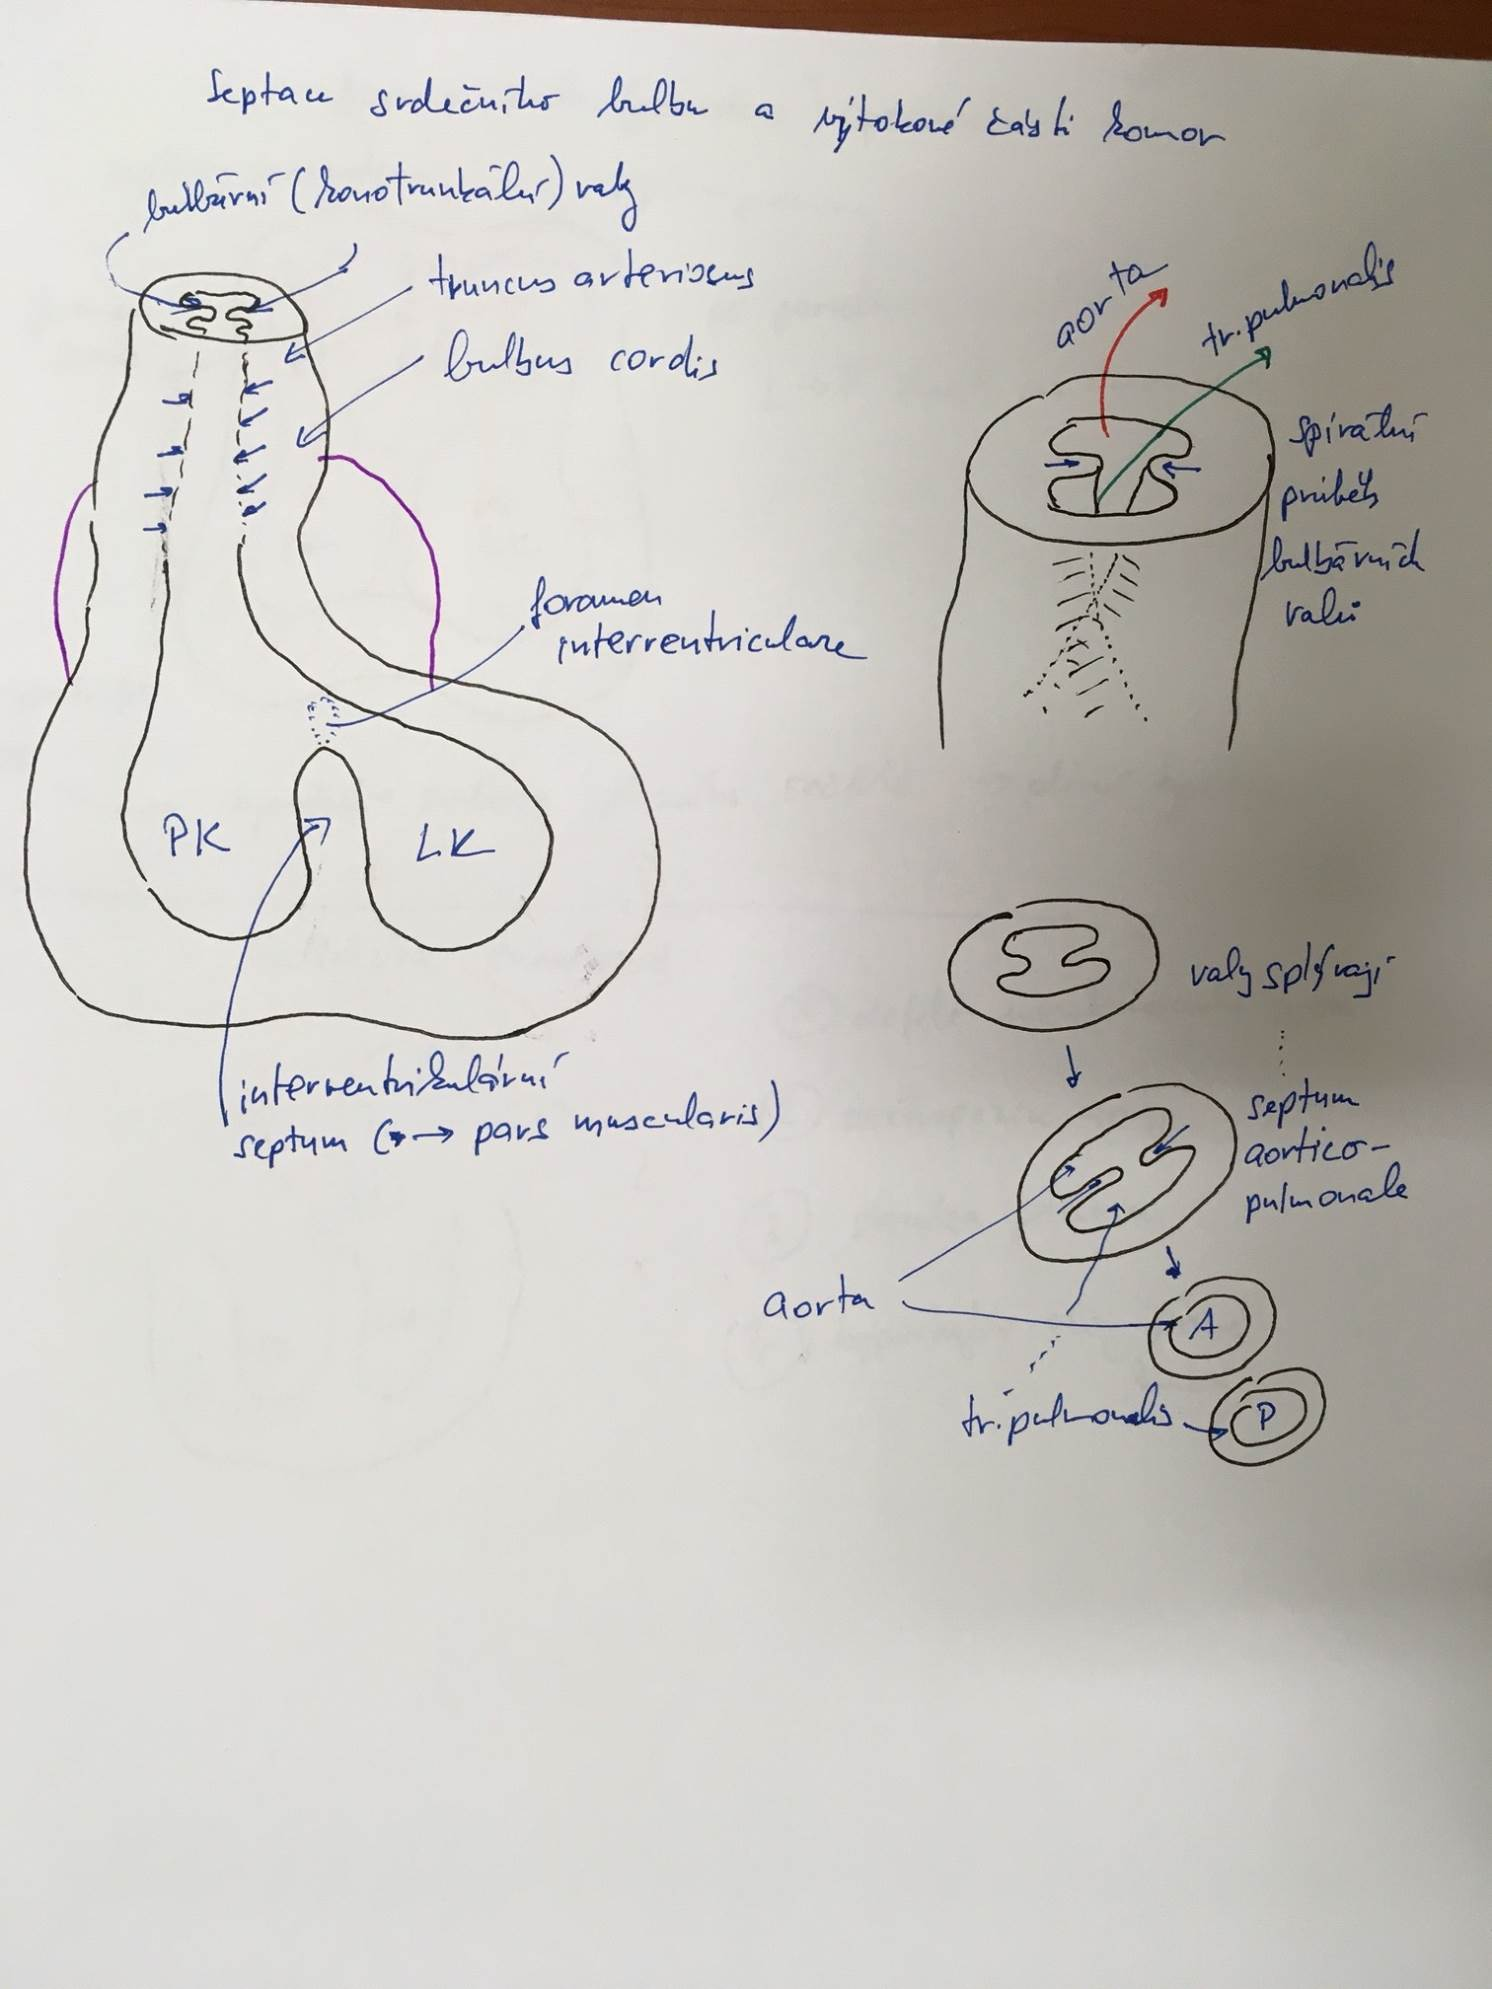 Septace srdečního bulbu a výtokové části komor
bulbární (konotrunkální) valy
truncus arteriosus
bulbus cordis
foramen
interventriculare
PK
LK
interventrikulární
septum (→ pars muscularis)
aorta
tr. pulmonalis
spirální
průběh
bulbárních
valů
valy splývají
septum
aortico-
pulmonale
aorta
A
tr. pulmonalis
P